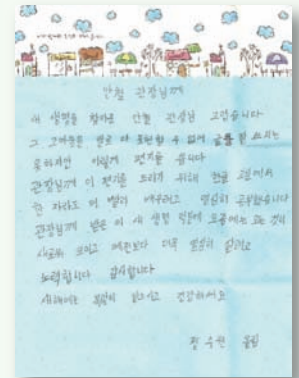 안철 관장님께
새 생명을 찾아준 안철 관장님 고맙습니다
그 고마움을 말로 다 표현할 수 없어 글을 잘 쓰지는
못하지만 이렇게 편지를 씁니다
관장님께 이 편지를 쓰려고 위해 한글 교실에서
한 자라도 더 빨리 배우려고 열심히 공부했습니다
관장님께 받은 이 새 생명 덕분에 요즘에는 모든 것이
새로워 보이고 예전보다 더욱 열심히 살려고
노력합니다 감사합니다
새해에는 복많이 받으시고 건강하세요
정수현 올림